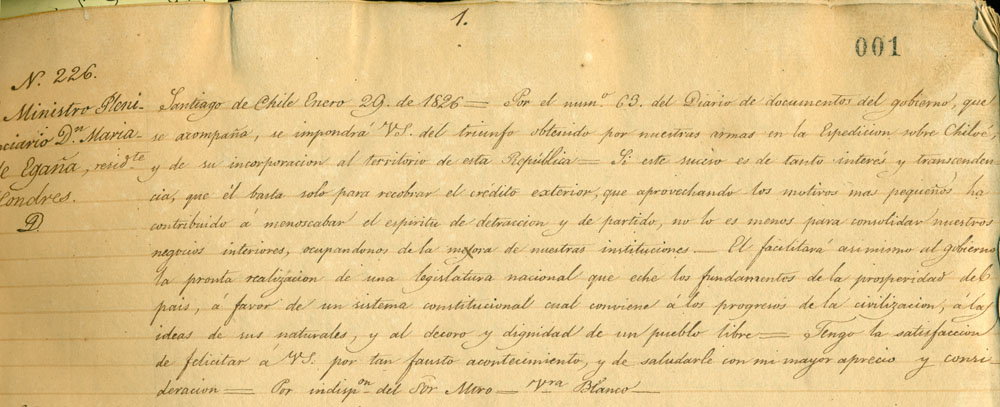 1.
001
N. 226.
Ministro Pleni-
ciario Dn. Maria-
de Egaña, residte
Londres.
D
Santiago de Chile Enero 29. de 1826 = Por el num.o 63. del Diario de documentos del gobierno, que
se acompaña, se impondrá V.S. del triunfo obtenido por nuestras armas en la Espedicion sobre Chiloé,
y de su incorporacion al territorio de esta República = Si este suceso es de tanto interés y transcenden
cia, que él basta solo para recobrar el crédito exterior, que aprovechando los motivos mas pequeños ha
contribuido á menoscabar el espiritu de detraccion y de partido, no lo es menos para consolidar nuestros
negocios interiores, ocupandonos de la mejora de nuestras instituciones — El facilitará asimismo al gobierno
la pronta realizacion de una legislatura nacional que eche los fundamentos de la prosperidad del
pais, á favor de un sistema constitucional cual conviene á los progresos de la civilizacion, á la
ideas de sus naturales, y al decoro y dignidad de un pueblo libre = Tengo la satisfaccion
de felicitar a V.S. por tan fausto acontecimiento, y de saludarle con mi mayor aprecio y consi
deracion = Por indispon del Sor Mtro = Vra Blanco —